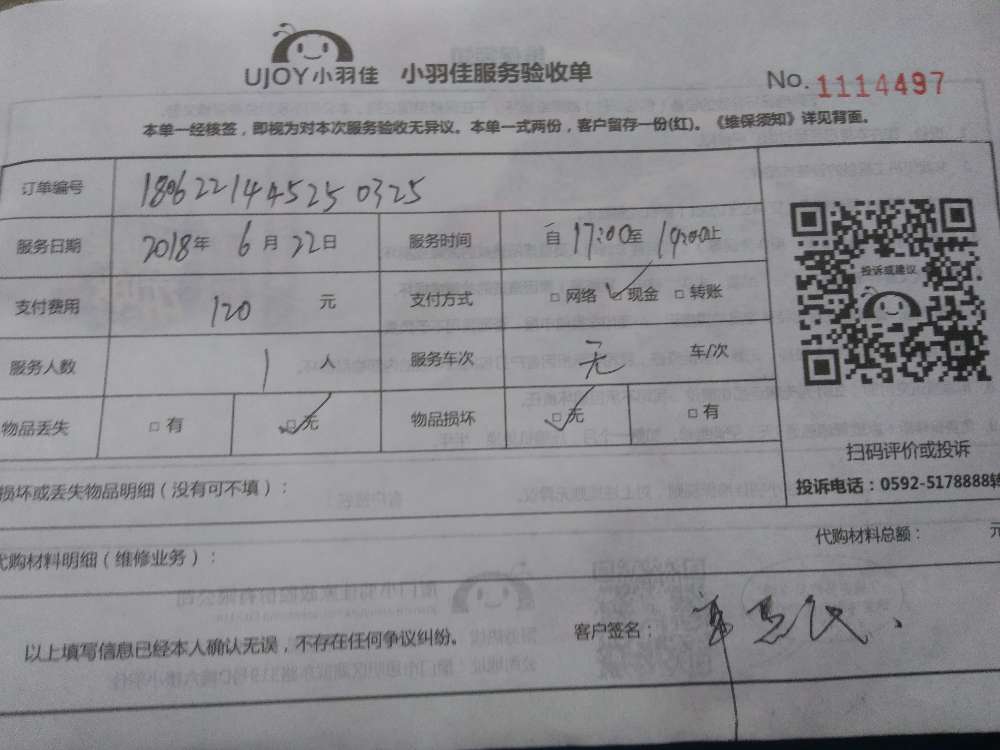 UJOY小羽佳 小羽佳服务验收单
No. 1114497
本单一经核签，即视为对本次服务验收无异议。本单一式两份，客户留存一份(红)。《维保须知》详见背面。
订单编号 180622144525 0325
服务日期 2018年 6月 22日 服务时间 自 17:00至 19:00止
支付费用 120 元 支付方式 □网络 ☑现金 □转账
服务人数 1 人 服务车次 无 车/次
物品丢失 □有 ☑无 物品损坏 ☑无 □有
投诉或建议
扫码评价或投诉
投诉电话：0592-5178888转
损坏或丢失物品明细（没有可不填）：
代购材料明细（维修业务）：
代购材料总额： 元
以上填写信息已经本人确认无误，不存在任何争议纠纷。 客户签名：